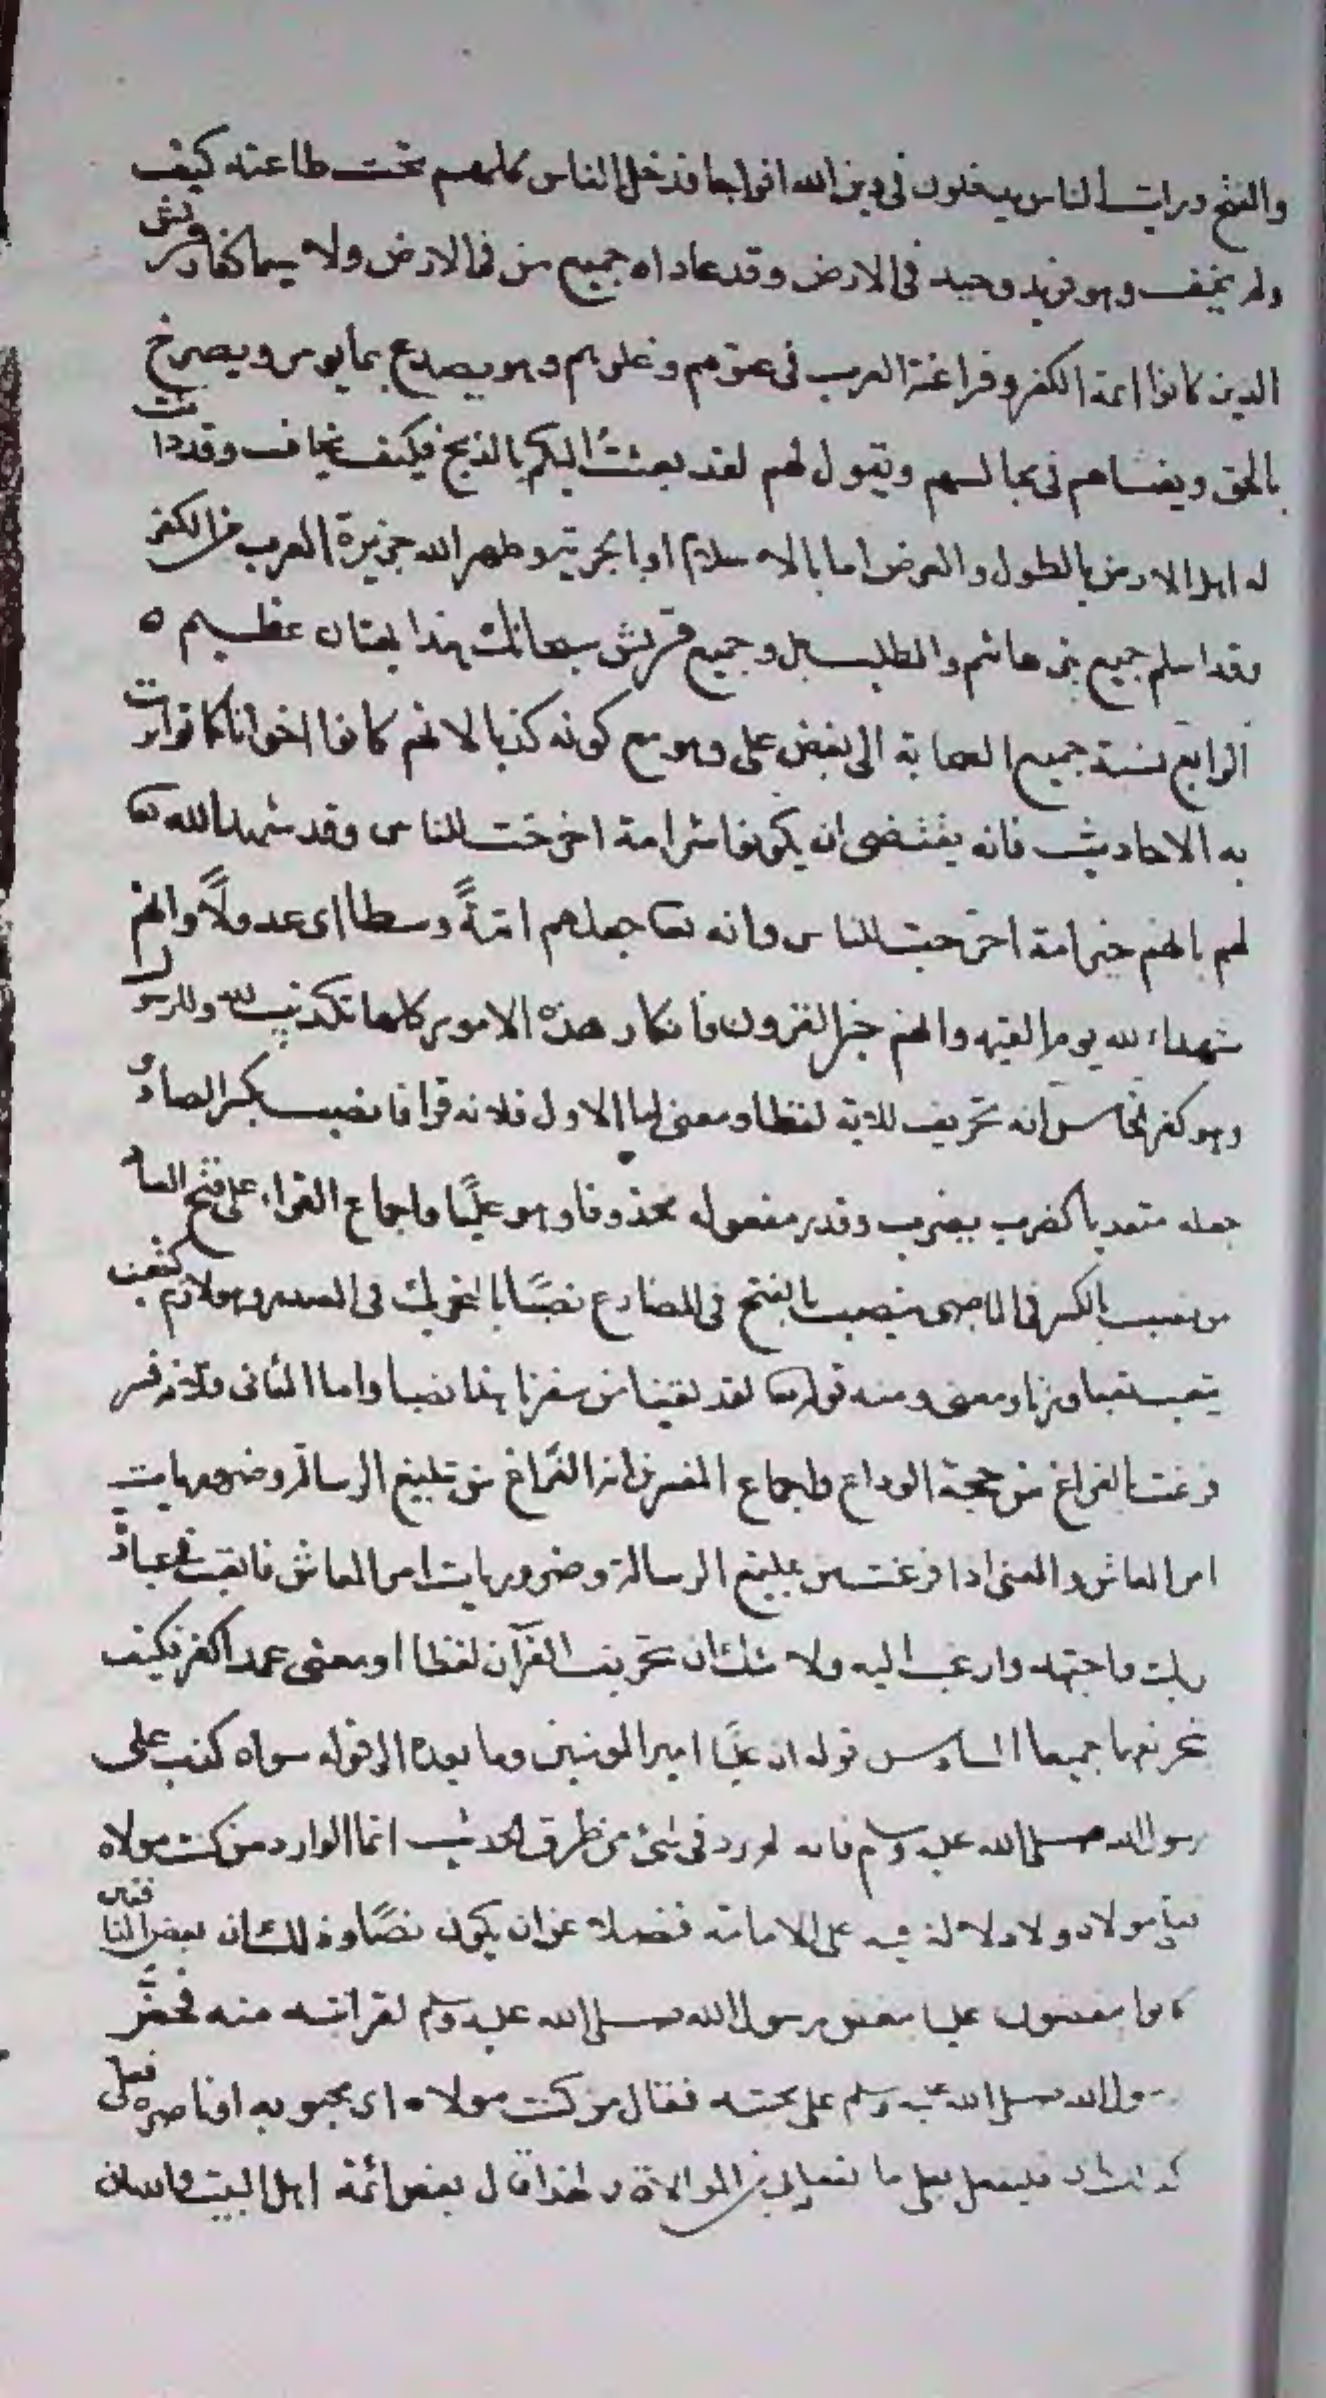 والفتح ورايت الناس يدخلون في دين الله افواجا فدخل الناس كلهم تحت طاعته كيف
ولم يخف وهو فريد وحيد في الارض وقد عاداه جميع من في الارض ولا سيما كفار قريش
الذين كانوا ايمة الكفر وفراعنة العرب في عتوهم وغلوهم وهو يصدع بما يومر ويصرخ
بالحق ويغشاهم في مجالسهم ويقول لهم لقد بعثت اليكم بالذبح فكيف يخاف وقد دانت
له اهل الارض بالطول والعرض اما بالاسلام او بالجزية وطهر الله جزيرة العرب من الكفر
وقد اسلم جميع بني هاشم والمطلب بل وجميع قريش سبحانك هذا بهتان عظيم ه
الرابع نسبة جميع الصحابة الى بغض علي وهو مع كونه كذبا لانهم كانوا اخوانا كما تواترت
به الاحاديث فانه يقتضي ان يكونوا شر امة اخرجت للناس وقد شهد الله تعا
لهم بانهم خير امة اخرجت للناس وانه تعا جعلهم امّةً وسطا اى عدولاً وانهم
شهداء لله يوم القيمة وانهم خير القرون فانكار هذه الامور كلها تكذيب لله وللرسول
وهو كفر الخامس انه تحريف للاية لفظا ومعنى اما الاول فلانه قرا فانصب بكسر الصاد و
جعله متعديا كضرب يضرب وقدر مفعوله محذوفا وهو عليًا واجماع القراء على فتح الصاد
من نصب بالكسر في الماضى ينصب بالفتح في المضارع نصبًا بالتحريك في المصدر وهو لازم كتعب
يتعب تعبا وزنا ومعنى ومنه قوله تعا لقد لقينا من سفرنا هذا نصبا واما الثاني فلانه فسر
فرغت بالفراغ من حجة الوداع واجماع المفسرين انه الفراغ من تبليغ الرسالة وضروريات
امر المعاش والمعنى اذا فرغت من تبليغ الرسالة وضروريات امر المعاش فاتعب في عبادة
ربك واجتهد وارغب اليه ولا شك ان تحريف القرآن لفظا او معنى عمدا كفر فكيف
تحريفهما جميعا السادس قوله ان عليًا امير المومنين وما بعده الى قوله سواه كذب على
رسول الله صلى الله عليه وسلم فانه لم يرد في شئ من طرق الحديث انما الوارد من كنت مولاه
فعلي مولاه ولا دلالة فيه على الامامة فضلا عن ان يكون نصًا وذلك ان بعض المنافقين
كانوا يبغضون عليا بغض رسول الله صلى الله عليه وسلم لقرابته منه فحضّ
رسول الله صلى الله عليه وسلم على محبته فقال من كنت مولاه اى محبوبه او ناصره فعلي
كذلك فليفعل بعلي ما يفعل بي من الموالاة ولهذا قال بعض ائمة اهل البيت